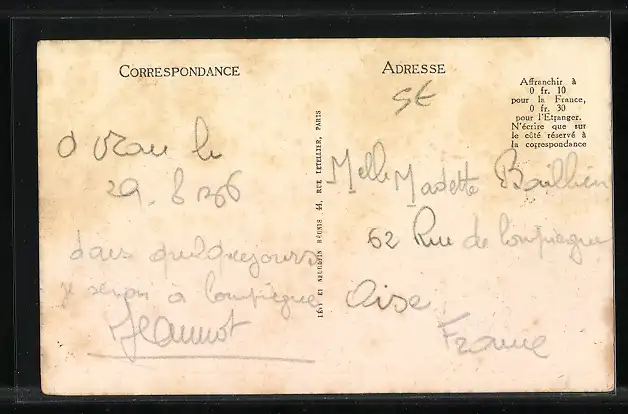 CORRESPONDANCE
ADRESSE
Affranchir à
0 fr. 10
pour la France,
0 fr. 30
pour l'Etranger.
N'écrire que sur
le côté réservé à
la correspondance
LÉVY ET NEURDEIN RÉUNIS 44, RUE LETELLIER, PARIS
le
29. 8
dans quelques jours
je serai à Compiègne
Jeannot
Melle
62 Rue de Compiègne
Oise
France